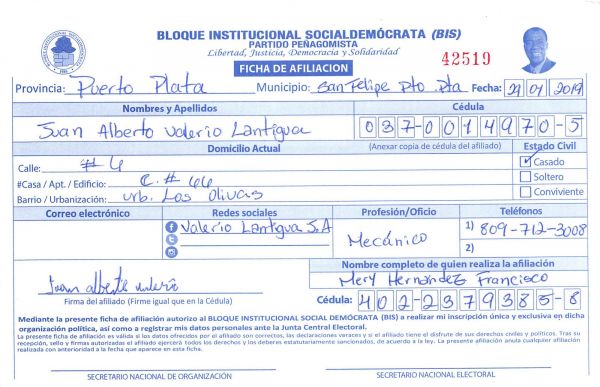 BLOQUE INSTITUCIONAL SOCIALDEMÓCRATA (BIS)
PARTIDO PEÑAGOMISTA
Libertad, Justicia, Democracia y Solidaridad
FICHA DE AFILIACION
42519
Provincia: Puerto Plata Municipio: San Felipe Pto Pta Fecha: 29 01 2019
Nombres y Apellidos Cédula
Juan Alberto Valerio Lantigua 037-0014970-5
Domicilio Actual (Anexar copia de cédula del afiliado) Estado Civil
Calle: #4 Casado
#Casa / Apt. / Edificio: C. # 46 Soltero
Barrio / Urbanización: Urb. Los Olivas Conviviente
Correo electrónico Redes sociales Profesión/Oficio Teléfonos
Valerio Lantigua S.A Mecánico 1) 809-712-3008
2)
Nombre completo de quien realiza la afiliación
Juan alberto valerio Mery Hernández Francisco
Firma del afiliado (Firme igual que en la Cédula) Cédula: 402-2379385-8
Mediante la presente ficha de afiliación autorizo al BLOQUE INSTITUCIONAL SOCIAL DEMÓCRATA (BIS) a realizar mi inscripción única y exclusiva en dicha
organización política, así como a registrar mis datos personales ante la Junta Central Electoral.
La presente ficha de afiliación es válida si los datos ofrecidos por el afiliado son correctos, las declaraciones veraces y si el afiliado tiene el disfrute de sus derechos civiles y políticos. Tras su
recepción, sello y firmas autorizadas el afiliado ejercerá todos los derechos y los deberes estatutariamente sancionados, de acuerdo a la ley. La presente afiliación anula cualquier afiliación
realizada con anterioridad a la fecha que aparece en esta ficha.
SECRETARIO NACIONAL DE ORGANIZACIÓN SECRETARIO NACIONAL ELECTORAL